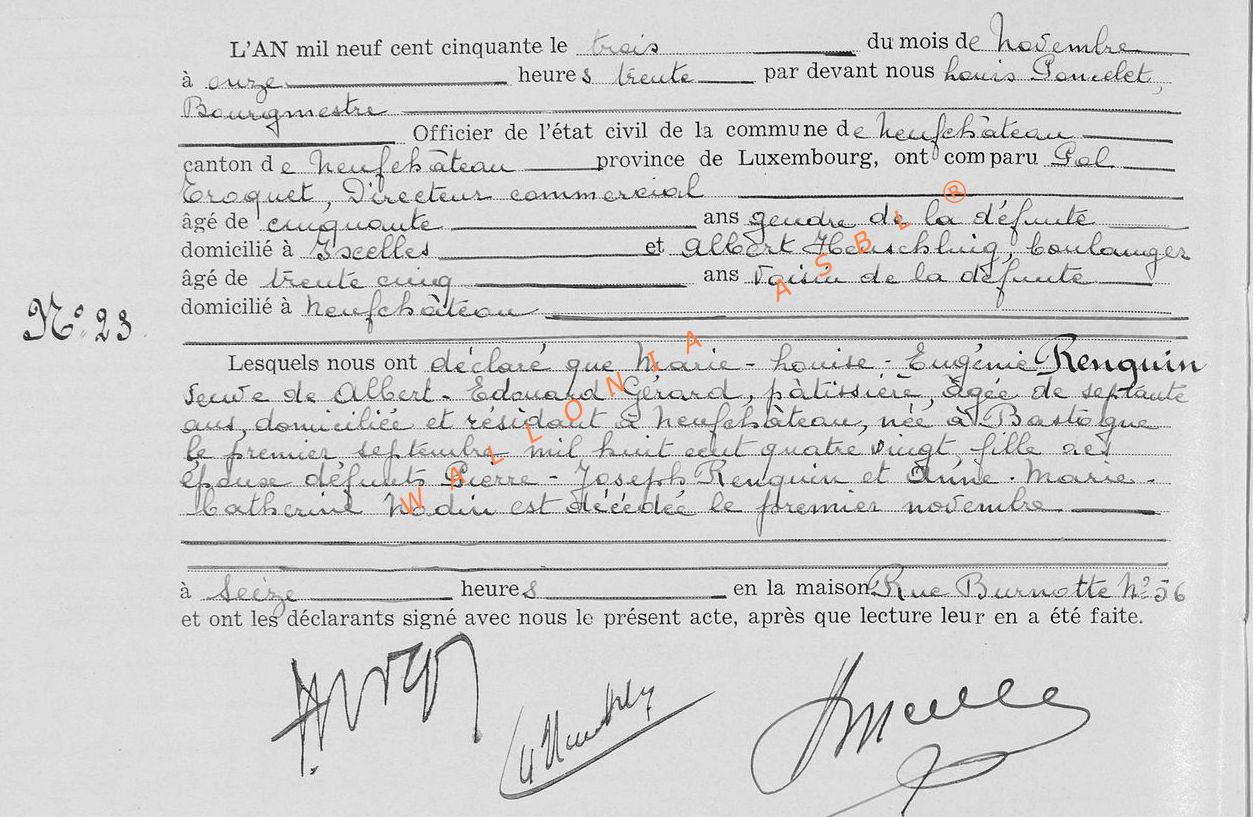 L'AN mil neuf cent cinquante le trois du mois de Novembre
à onze heures trente par devant nous Louis Poncelet,
Bourgmestre
Officier de l'état civil de la commune de Neufchâteau
canton de Neufchâteau province de Luxembourg, ont comparu Pol
Croquet, Directeur commercial
âgé de cinquante ans gendre de la défunte
domicilié à Ixelles et Albert Heuschling, boulanger
âgé de trente cinq ans voisin de la défunte
domicilié à Neufchâteau
N° 23
Lesquels nous ont déclaré que Marie-Louise-Eugénie Renquin
veuve de Albert-Edouard Gérard, pâtissière, âgée de septante
ans, domiciliée et résidant à Neufchâteau, née à Bastogne
le premier septembre mil huit cent quatre vingt, fille des
épouse défunts Pierre-Joseph Renquin et Anne-Marie-
Catherine Nadin est décédée le premier novembre
à seize heures en la maison Rue Burnotte N° 56
et ont les déclarants signé avec nous le présent acte, après que lecture leur en a été faite.
WALLONIA ASBL ®